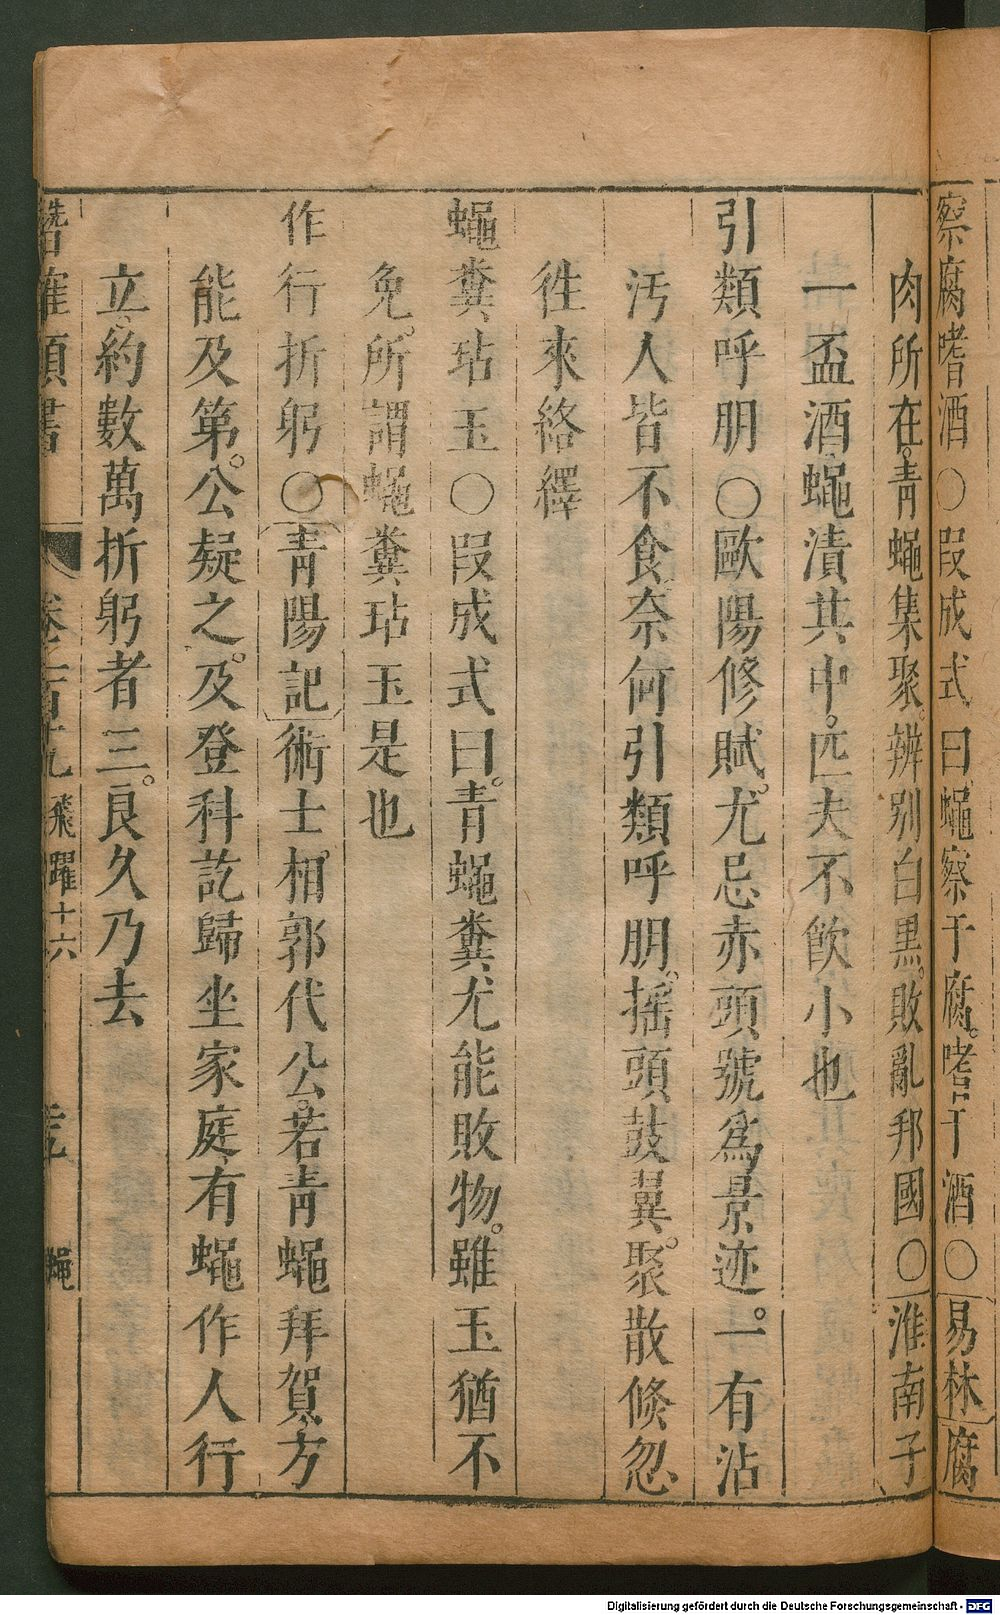 察腐嗜酒○段成式曰蠅察于腐。嗜于酒○易林腐
肉所在。青蠅集聚。辨别白黒。敗亂邦國○淮南子
一盃酒蠅漬其中。匹夫不飲小也
引類呼朋○歐陽修賦。尤忌赤頭號爲景迹。一有沾
汚人皆不食奈何引類呼朋。摇頭鼓翼。聚散倐忽
徃來絡繹
蠅糞玷玉○段成式曰。青蠅糞尤能敗物。雖玉猶不
免。所謂蠅糞玷玉是也
作行折躬○青陽記術士相郭代公。若青蠅拜賀方
能及第。公疑之。及登科訖歸坐家庭有蠅作人行
立約數萬折躬者三。良久乃去
卷之百九 飛躍十六 蠅
Digitalisierung gefördert durch die Deutsche Forschungsgemeinschaft - DFG